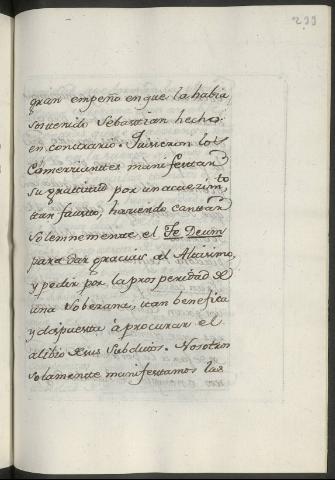 233
gran empeño en que la havia
sostenido Sebastian hecho
en contrario. Quisieron los
Comerciantes manifestar
su gratitud por un acaecim.to
tan fausto, haviendo cantar
solemnemente el Te Deum
para dar gracias al Altisimo,
y pedir por la prosperidad de
una Soberana, tan benefica
y dispuesta à procurar el
alibio de sus Subditos. Nosotros
solamente manifestamos las